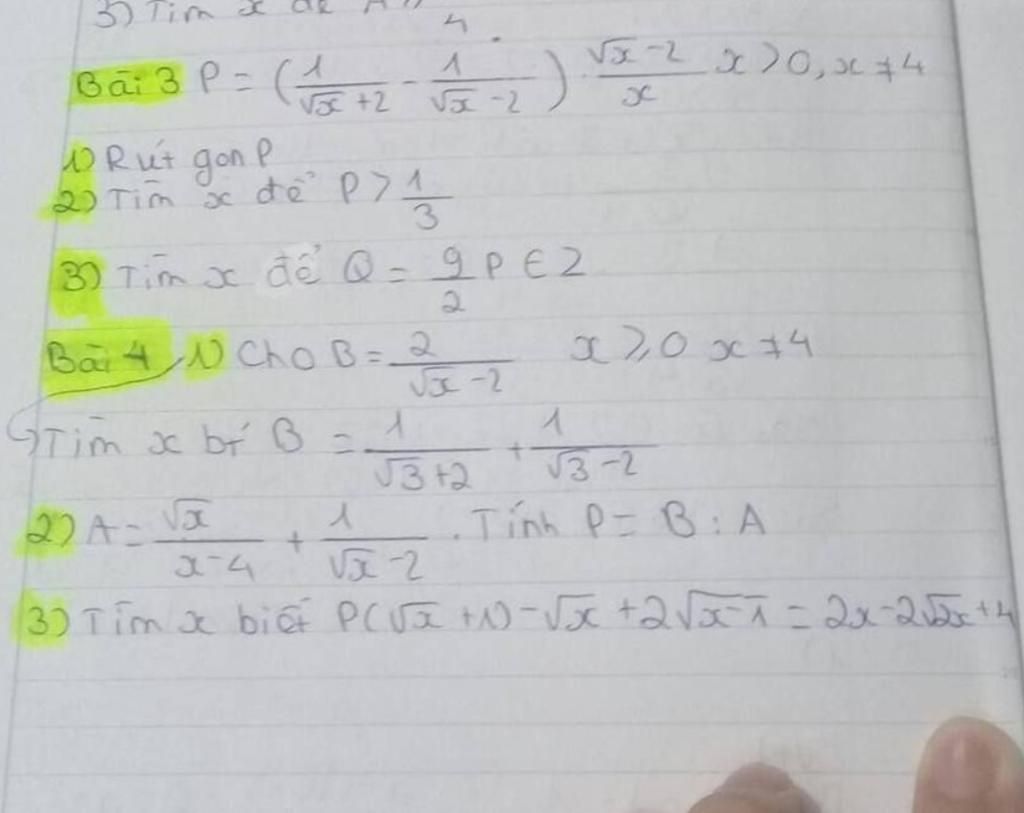 3) Tìm x để A
4.
Bài 3 P = (1/(√x +2) - 1/(√x -2)) . (√x -2)/x x > 0, x ≠ 4
1) Rút gọn P
2) Tìm x để P > 1/3
3) Tìm x để Q = 9/2 P ∈ Z
Bài 4 1) Cho B = 2/(√x -2) x ⩾ 0 x ≠ 4
Tìm x bt B = 1/(√3+2) + 1/(√3-2)
2) A = √x/(x-4) + 1/(√x -2) . Tính P = B : A
3) Tìm x biết P(√x +1) - √x + 2√(x-1) = 2x - 2√2x + 4